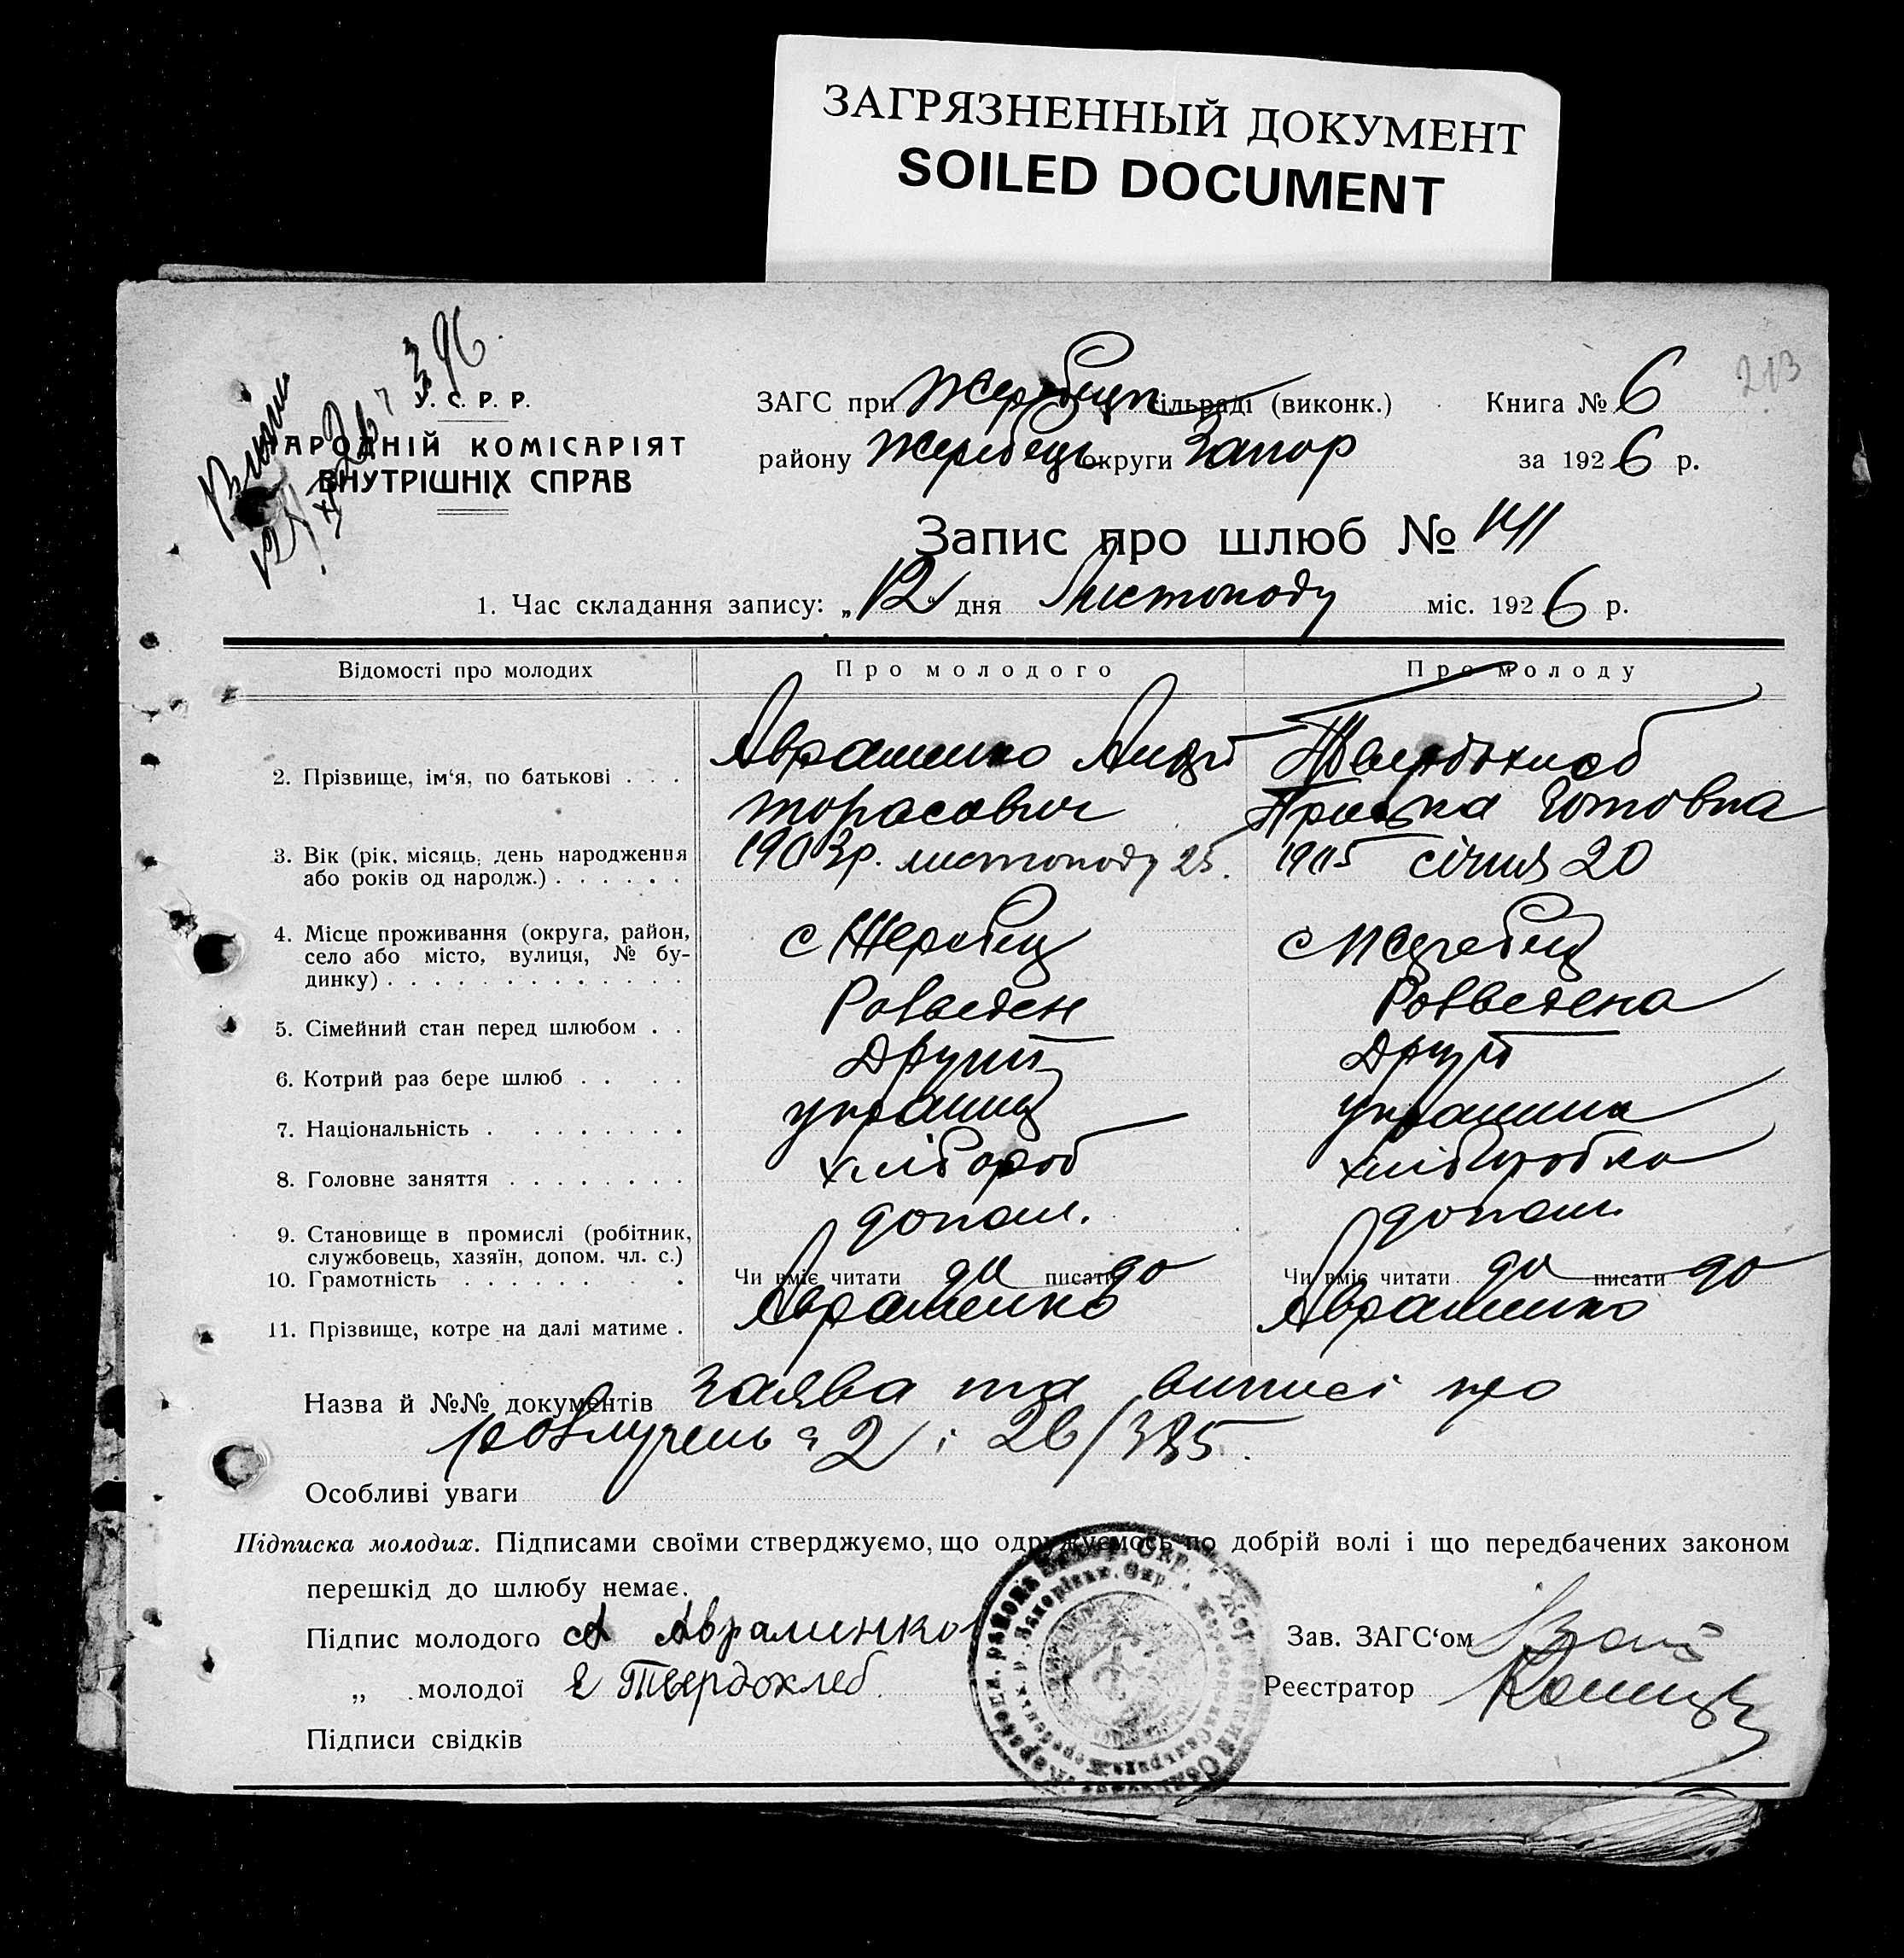 ЗАГРЯЗНЕННЫЙ ДОКУМЕНТ
SOILED DOCUMENT
396
213
У. С. Р. Р.
НАРОДНІЙ КОМІСАРІЯТ
ВНУТРІШНІХ СПРАВ
ЗАГС при Жеребецк сільраді (виконк.) Книга № 6
району Жеребець округи Запор за 1926 р.
Запис про шлюб № 141
1. Час складання запису: „12“ дня Листопаду міс. 1926 р.
Відомості про молодих Про молодого Про молоду
2. Прізвище, ім‘я, по батькові . . . Авраменко Андрій Твердохліб
торасович Титовна
3. Вік (рік, місяць, день народження 1903р. листопаду 25. 1905 січня 20
або років од народж.) . . . . . .
4. Місце проживання (округа, район, с Жеребец с Жеребец
село або місто, вулиця, № бу-
динку) . . . . . . . . . . . . .
5. Сімейний стан перед шлюбом . . Розведен Розведена
6. Котрий раз бере шлюб . . . . Другий Другий
7. Національність . . . . . . . . українец українка
8. Головне заняття . . . . . . . . хлібороб хліборобка
9. Становище в промислі (робітник, допом. допом.
службовець, хазяїн, допом. чл. с.)
10. Грамотність . . . . . . . . Чи вміє читати да писати да Чи вміє читати да писати да
11. Прізвище, котре на далі матиме . Авраменко Авраменко
Назва й №№ документів Заява та виписі про
розлучень з 2 і 26/385.
Особливі уваги
Підписка молодих. Підписами своїми стверджуємо, що одружуємось по добрій волі і що передбачених законом
перешкід до шлюбу немає.
Підпис молодого А Авраминко Зав. ЗАГС‘ом
„ молодої Е Твердохлеб Реєстратор
Підписи свідків